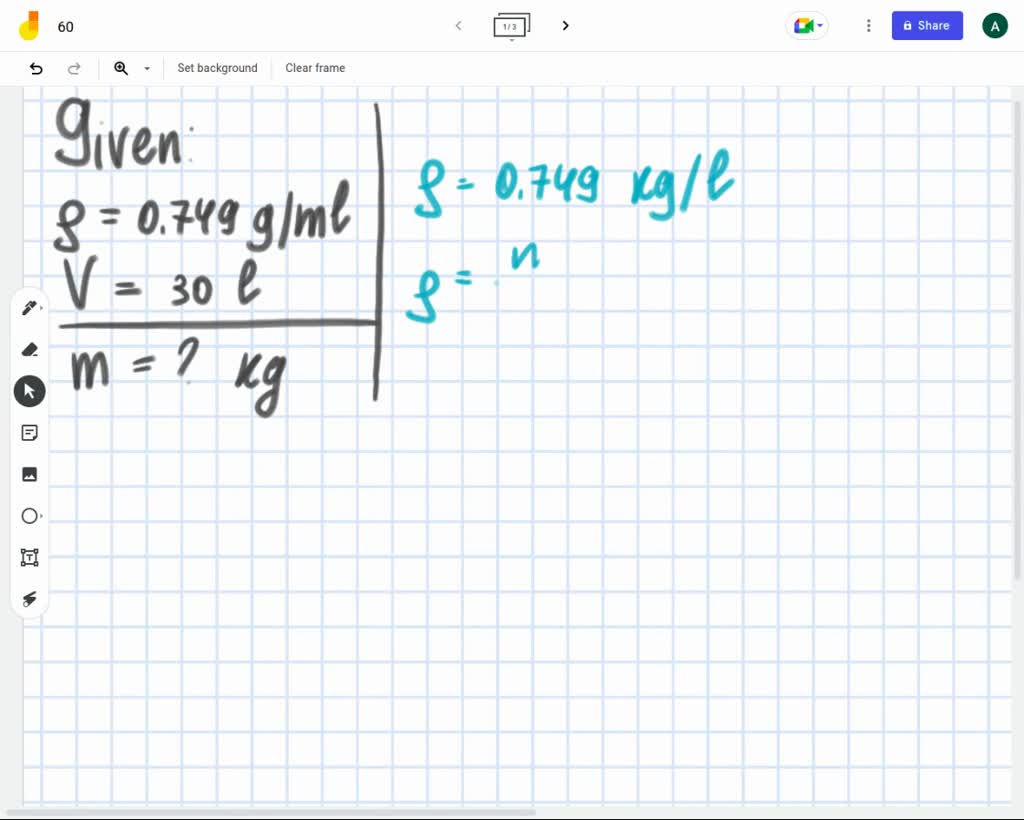 60
1/3
Share
A
Set background
Clear frame
Given:
ρ = 0.749 g/ml
V = 30 l
m = ? kg
ρ = 0.749 kg/l
ρ = n